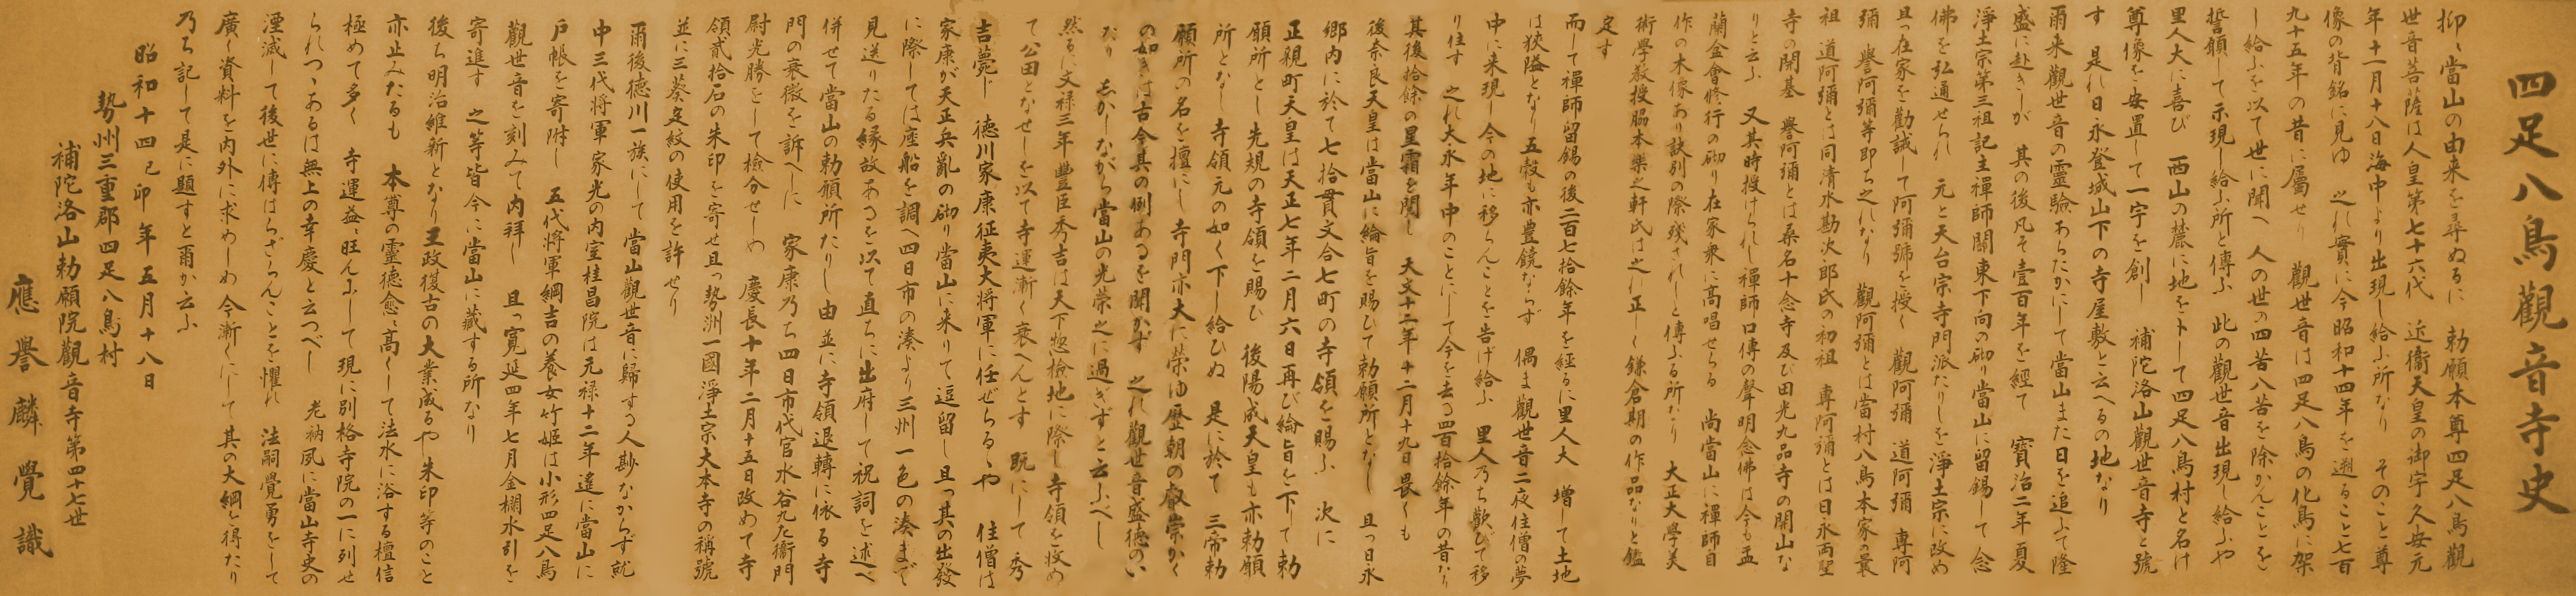 四足八鳥觀音寺史
抑〻當山の由来を尋ぬるに　勅願本尊四足八鳥觀
世音菩薩は人皇第七十六代　近衞天皇の御宇久安元
年十一月十八日海中より出現し給ふ所なり　そのこと尊
像の背銘に見ゆ　之れ實に今昭和十四年を遡ること七百
九十五年の昔に屬せり　觀世音は四足八鳥の化鳥に架
し給ふを以て世に聞へ　人の世の四苦八苦を除かんことを
誓願して示現し給ふ所と傳ふ　此の觀世音出現し給ふや
里人大に喜び　西山の麓に地を卜して四足八鳥村と名け
尊像を安置して一宇を創し　補陀洛山觀世音寺と號
す　是れ日永登城山下の寺屋敷と云へるの地なり
爾来觀世音の靈驗あらたかにして當山また日を追ふて隆
盛に赴きしが　其の後凡そ壹百年を經て　寶治二年夏
淨土宗第三祖記主禪師關東下向の砌り當山に留錫して念
佛を弘通せられ　元と天台宗寺門派たりしを淨土宗に改め
且つ在家を勸誡して阿彌號を授く　觀阿彌　道阿彌　專阿
彌　譽阿彌等即ち之れなり　觀阿彌とは當村八鳥本家の最
祖　道阿彌とは同清水勘次郎氏の初祖　專阿彌とは日永両聖
寺の開基　譽阿彌とは桑名十念寺及び田光九品寺の開山な
りと云ふ　又其時授けられし禪師口傳の聲明念佛は今も盂
蘭盆會修行の砌り在家衆に高唱せらる　尚當山に禪師自
作の木像あり訣別の際残されしと傳ふる所なり　大正大學美
術學教授脇本樂之軒氏は之れ正しく鎌倉期の作品なりと鑑
定す
而して禪師留錫の後二百七拾餘年を經るに里人大　増して土地
は狹隘となり五穀も亦豊饒ならず　偶ま觀世音一夜住僧の夢
中に来現し今の地に移らんことを告げ給ふ　里人乃ち歡びて移
り住す　之れ大永年中のことにして今を去る四百拾餘年の昔なり
其後拾餘の星霜を閲し　天文十二年十二月十九日畏くも
後奈良天皇は當山に綸旨を賜ひて勅願所となし　且つ日永
郷内に於て七拾貫文合七町の寺領を賜ふ　次に
正親町天皇は天正七年二月六日再び綸旨を下して勅
願所とし先規の寺領を賜ひ　後陽成天皇も亦勅願
所となし　寺領元の如く下し給ひぬ　是に於て　三帝勅
願所の名を擅にし　寺門亦大に榮ゆ歴朝の叡崇かく
の如きは古今其の例あるを聞かず　之れ觀世音盛徳のい
なり　しかしながら當山の光榮之に過ぎずと云ふべし
然るに文禄三年豐臣秀吉は天下惣檢地に際し寺領を收め
て公田となせしを以て寺運漸く衰へんとす　既にして秀
吉薨じ　徳川家康征夷大将軍に任ぜらるゝや　住僧は
家康が天正兵亂の砌り當山に来りて逗留し且つ其の出發
に際しては座船を調へ四日市の湊より三州一色の湊まで
見送りたる縁故あるを以て直ちに出府して祝詞を述べ
併せて當山の勅願所たりし由並に寺領退轉に依る寺
門の衰微を訴へしに　家康乃ち四日市代官水谷九左衞門
尉光勝をして檢分せしめ　慶長十年二月十五日改めて寺
領貳拾石の朱印を寄せ且つ勢洲一國淨土宗大本寺の稱號
並に三葵定紋の使用を許せり
爾後德川一族にして當山觀世音に歸する人尠なからず就
中三代将軍家光の内室桂昌院は元禄十二年遙に當山に
戸帳を寄附し　五代将軍綱吉の養女竹姫は小形四足八鳥
觀世音を刻みて内拝し　且つ寛延四年七月金襴水引を
寄進す　之等皆今に當山に藏する所なり
後ち明治維新となり王政復古の大業成るや朱印等のこと
亦止みたるも　本尊の靈德愈〻高くして法水に浴する檀信
極めて多く　寺運益〻旺んふして現に別格寺院の一に列せ
られつゝあるは無上の幸慶と云つべし　老衲夙に當山寺史の
湮滅して後世に傳はらざらんことを懼れ　法嗣覺勇をして
廣く資料を内外に求めしめ今漸くにして其の大綱を得たり
乃ち記して是に題すと爾か云ふ
昭和十四己卯年五月十八日
勢州三重郡四足八鳥村
補陀洛山勅願院觀音寺第四十七世
應譽麟覺識